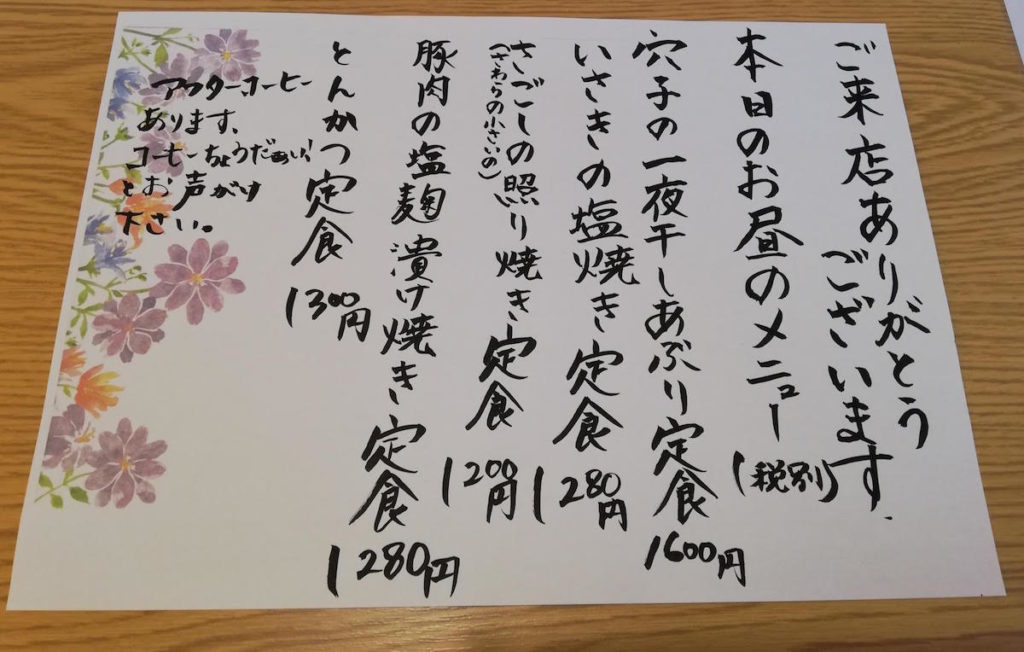 ご来店ありがとう
ございます
本日のお昼のメニュー
(税別)
穴子の一夜干しあぶり定食
1600円
いさきの塩焼き定食
1280円
さごしの照り焼き定食
(さわらの小さいの)
1200円
豚肉の塩麹漬け焼き定食
1280円
とんかつ定食
1300円
アフターコーヒー
あります、
コーヒーちょうだぁい!
とお声がけ
下さい。